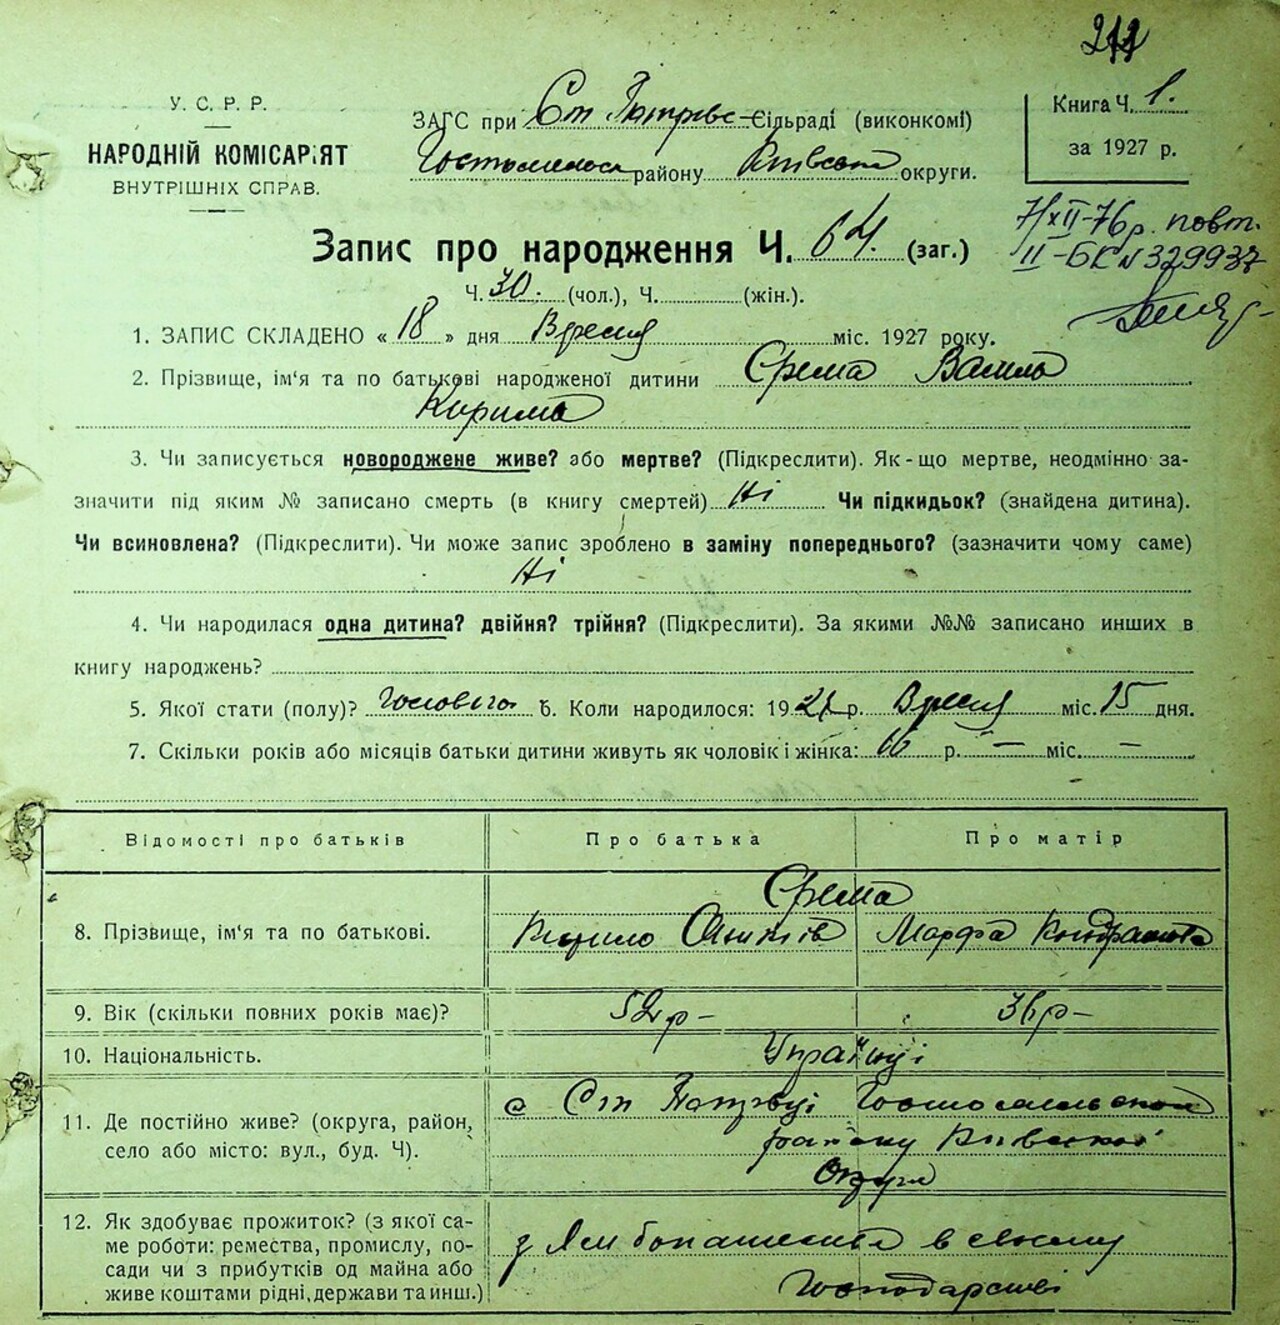 У. С. Р. Р.
НАРОДНІЙ КОМІСАРІЯТ
ВНУТРІШНІХ СПРАВ.
ЗАГС при Ст Петрівс-Сільраді (виконкомі)
району Київської округи.
Книга Ч. 1.
за 1927 р.
7/XII-76р. повт.
II-БК № 329937
Запис про народження Ч. 64. (заг.)
Ч. 30. (чол.), Ч. (жін.).
1. ЗАПИС СКЛАДЕНО « 18 » дня Вресня міс. 1927 року.
2. Прізвище, ім'я та по батькові народженої дитини Єрема Василь
Кирила
3. Чи записується новороджене живе? або мертве? (Підкреслити). Як-що мертве, неодмінно за-
значити під яким № записано смерть (в книгу смертей) Ні Чи підкидьок? (знайдена дитина).
Чи всиновлена? (Підкреслити). Чи може запис зроблено в заміну попереднього? (зазначити чому саме)
Ні
4. Чи народилася одна дитина? двійня? трійня? (Підкреслити). За якими №№ записано инших в
книгу народжень?
5. Якої стати (полу)? 6. Коли народилося: 1927 р. Вресня міс. 15 дня.
7. Скільки років або місяців батьки дитини живуть як чоловік і жінка: 16 р. — міс. —
Відомості про батьків Про батька Про матір
Єрема
8. Прізвище, ім'я та по батькові. Кирило Марфа Кондратова
9. Вік (скільки повних років має)? 52р- 36р-
10. Національність. Українці
11. Де постійно живе? (округа, район, село або місто: вул., буд. Ч). с Ст Петрівці Гостомельского
району Київської
Округи
12. Як здобуває прожиток? (з якої са-
ме роботи: ремества, промислу, по-
сади чи з прибутків од майна або
живе коштами рідні, держави та инш.) в своєму
Господарстві